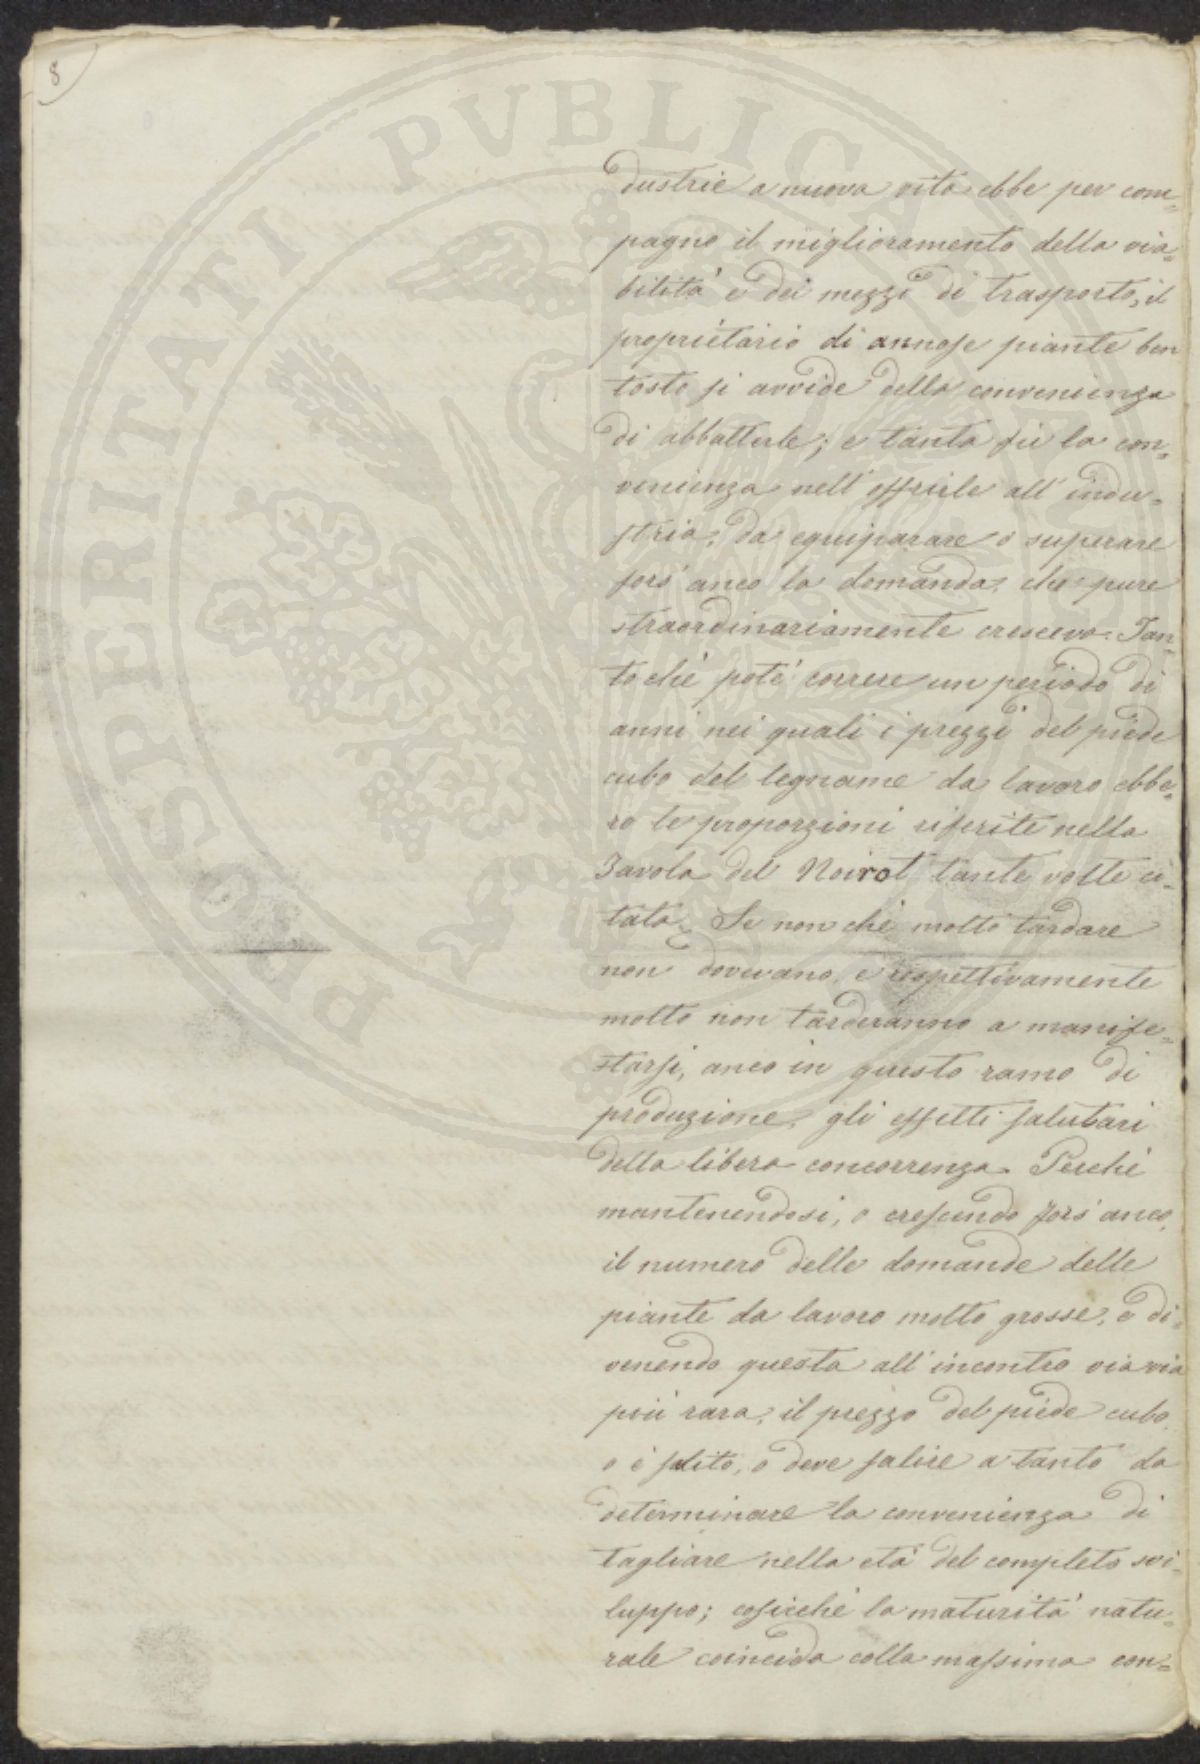 8
dustrie a nuova vita ebbe per com=
pagno il miglioramento della via=
bilità e dei mezzi di trasporto, il
proprietario di annose piante ben
tosto si avvide della convenienza
di abbatterle; e tanta fù la con=
venienza nell'offrirle all'indu=
stria, da equiparare o superare
fors'anco la domanda, che pure
straordinariamente cresceva. Tan=
to che potè correre un periodo di
anni nei quali i prezzi del piede
cubo del legname da lavoro ebbe=
ro le proporzioni riferite nella
Tavola del Noirot tante volte ci=
tata. Se non che molto tardare
non dovevano, e respettivamente
molto non tarderanno a manife=
starsi, anco in questo ramo di
produzione, gli effetti salutari
della libera concorrenza. Perchè
mantenendosi, o crescendo fors'anco,
il numero delle domande delle
piante da lavoro molto grosse, e di=
venendo questa all'incontro via via
più rara, il prezzo del piede cubo,
o è salito, o deve salire a tanto da
determinare la convenienza di
tagliare nella età del completo svi=
luppo; cosicchè la maturità natu=
rale coincida colla massima con=
PROSPERITATI PUBLICAE